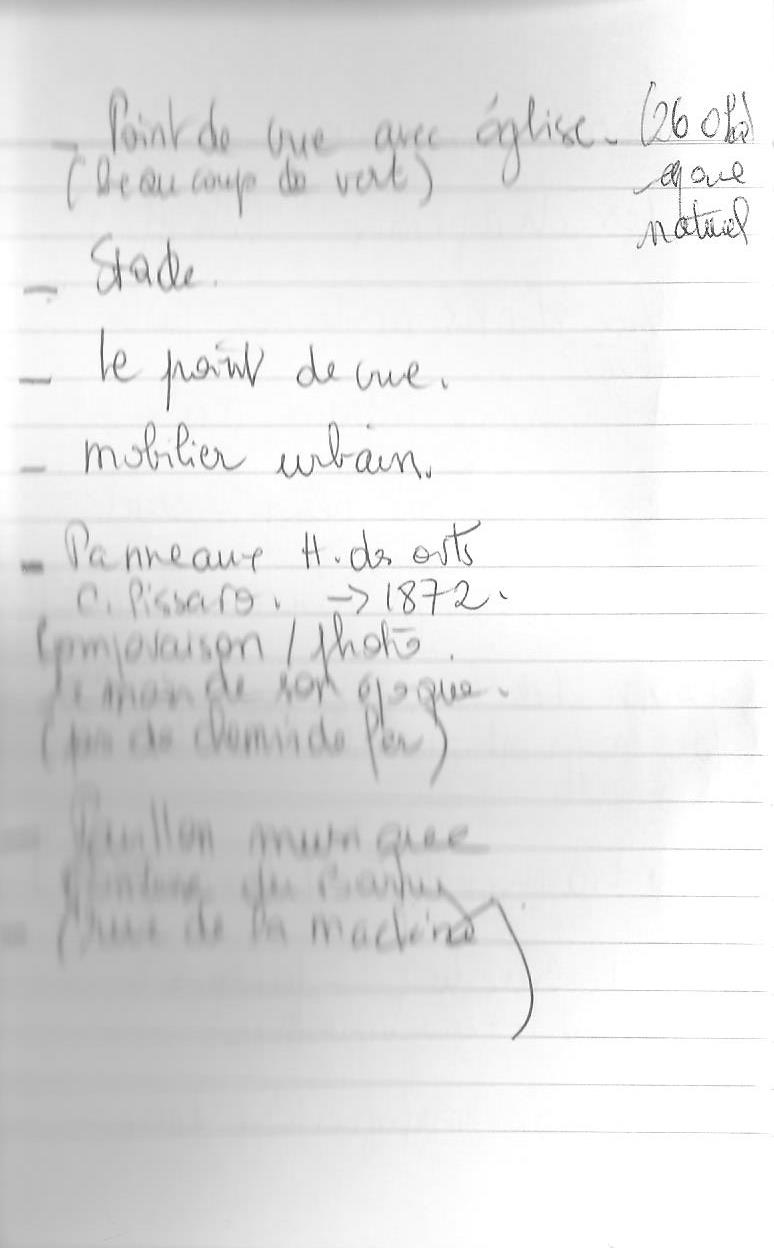 - Point de vue avec église. (26 0
(beaucoup de vert)
naturel
- Stade.
- le point de vue.
- mobilier urbain.
- Panneaux H. des arts
C. Pissaro. → 1872.
Comparaison / photo.
de son époque.
(pas de chemin de fer)
- musique
- (rue de la machine)